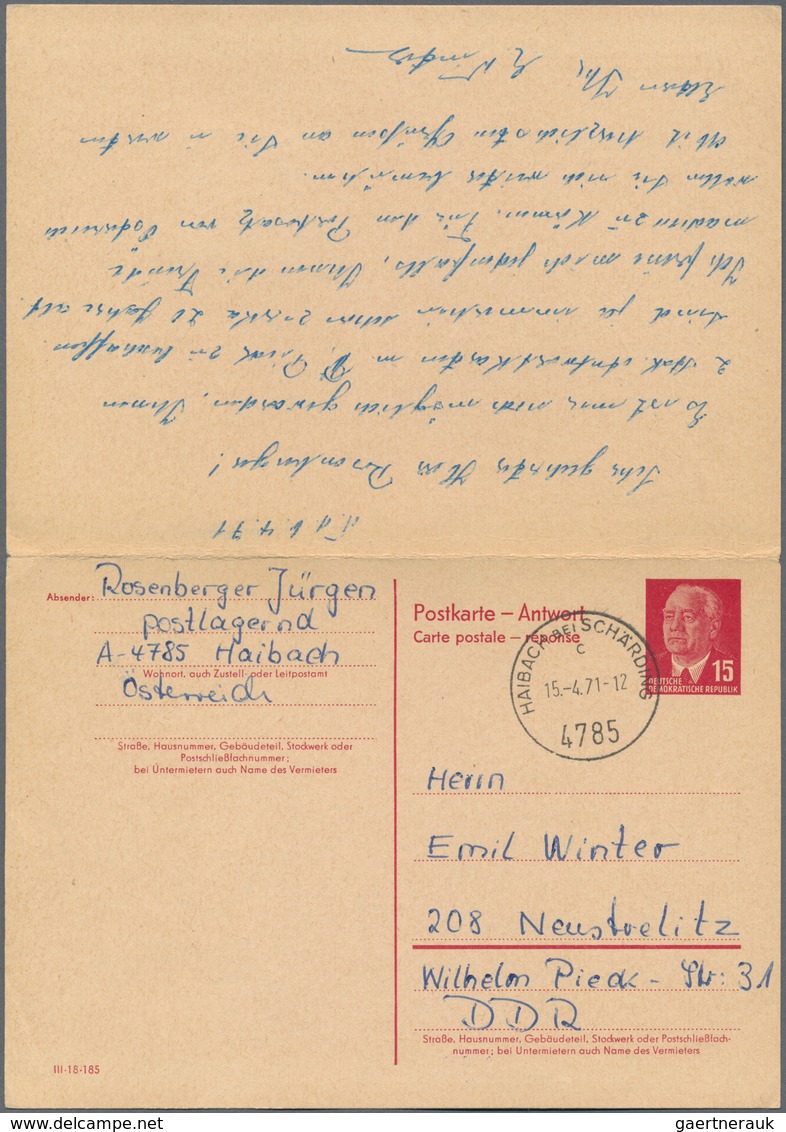 6.4.71
Sehr geehrter Herr Rosenberger!
Es ist mir noch möglich geworden, Ihnen
2 Stck. Antwortkarten m. P. Pieck zu beschaffen.
sind ja immerhin schon zirka 20 Jahre alt.
Ich freue mich jedenfalls, Ihnen die Freude
machen zu können. Für den Portosatz von Österreich
wollen Sie sich weiter bemühen.
Mit herzlichsten Grüßen an Sie u.
Ihr E. Winter
Absender: Rosenberger Jürgen
postlagernd
A-4785 Haibach
Wohnort, auch Zustell- oder Leitpostamt
Österreich
Straße, Hausnummer, Gebäudeteil, Stockwerk oder
Postschließfachnummer;
bei Untermietern auch Name des Vermieters
III-18-185
Postkarte – Antwort
Carte postale – réponse
15
DEUTSCHE
DEMOKRATISCHE REPUBLIK
HAIBACH BEI SCHÄRDING
c
15.-4.71-12
4785
Herrn
Emil Winter
208 Neustrelitz
Wilhelm Pieck - Str: 31
DDR
Straße, Hausnummer, Gebäudeteil, Stockwerk oder Postschließfach-
nummer; bei Untermietern auch Name des Vermieters
gaertnerauk